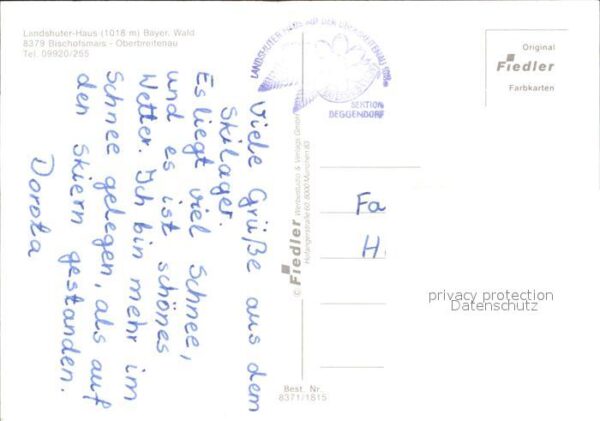 Landshuter-Haus (1018 m) Bayer. Wald
8379 Bischofsmais - Oberbreitenau
Tel. 09920/255
Viele Grüße aus dem
Skilager.
Es liegt viel Schnee,
und es ist schönes
Wetter. Ich bin mehr im
Schnee gelegen, als auf
den Skiern gestanden.
Dorota
LANDSHUTER HAUS AUF DER OBERBREITENAU
SEKTION
DEGGENDORF
© Fiedler Werbestudio & Verlags GmbH
8000 München 83
Best. Nr.
8371/1815
Original
Fiedler
Farbkarten
Fa
H
privacy protection
Datenschutz